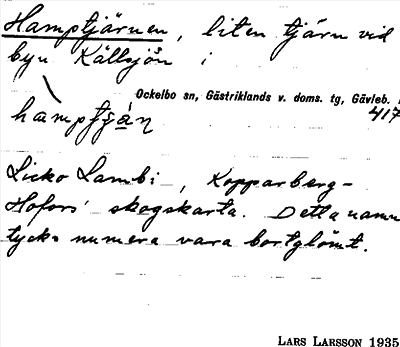 Hamptjärnen, liten tjärn vid
byn Källsjön i
Ockelbo sn, Gästriklands v. doms. tg, Gävleb.
417
Licko Lambi, Kopparberg-
Hofors' skogskarta. Detta namn
tycks numera vara bortglömt.
LARS LARSSON 1935